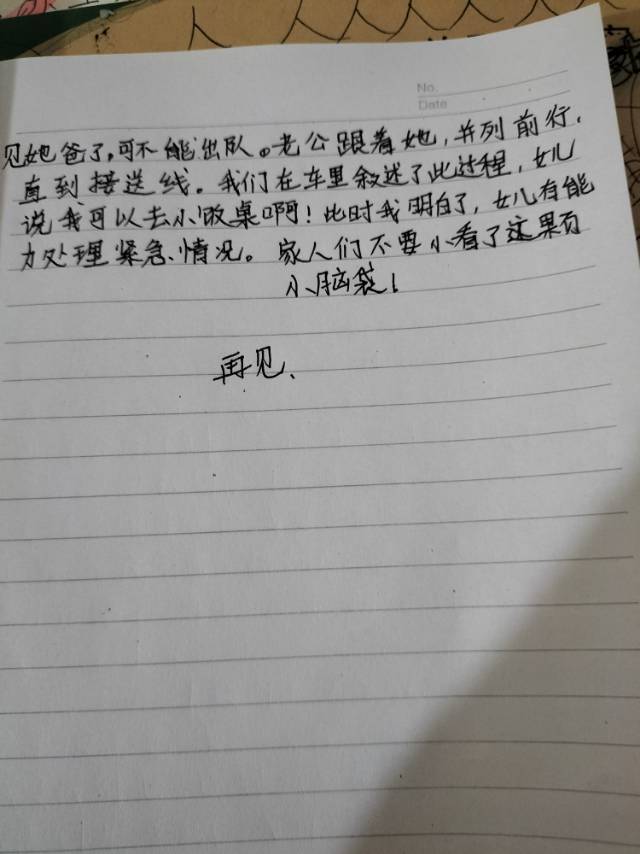 No.
Date
见她爸了,可不能出队。老公跟着她,并列前行,
直到接送线。我们在车里叙述了此过程,女儿
说我可以去小饭桌啊!此时我明白了,女儿有能
力处理紧急情况。家人们不要小看了这颗
小脑袋!
再见、